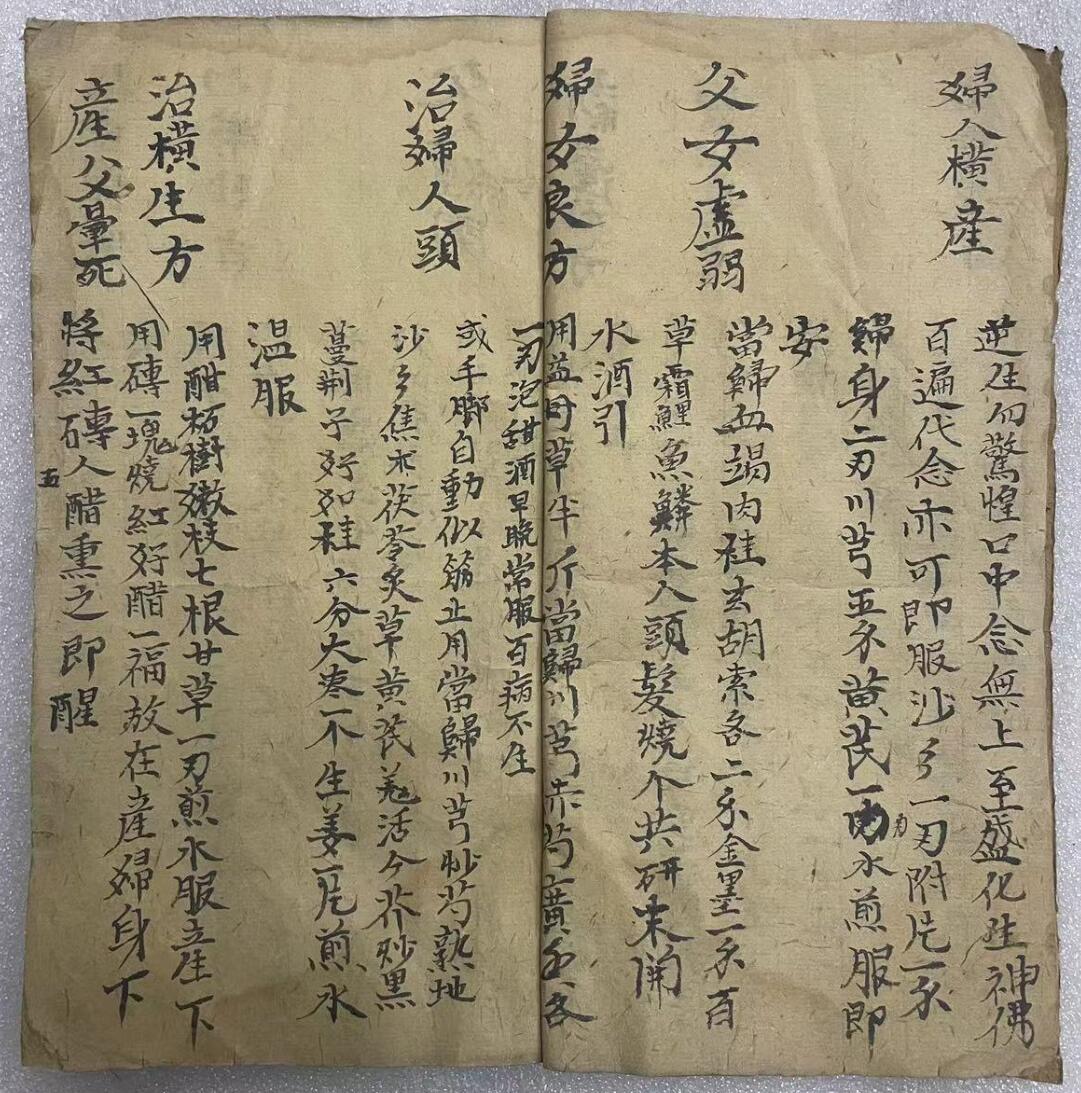 婦人横産
逆生勿驚惶口中念無上至盛化生神佛
百遍代念亦可即服沙彡一刃附片一禾
歸身二刃川芎五禾黄芪一水煎服即
安
父女虚弱
當歸血竭肉桂玄胡索各二禾金墨一禾百
草霜鯉魚鱗本人頭髮燒个共研末開
水酒引
婦女良方
用益母草半斤當歸川芎赤芍廣各
一刃泡甜酒早晚常服百病不生
治婦人頭
或手腳自動似筋止用當歸川芎炒芍熟地
沙彡焦朮茯苓炙草黄芪羗活今芥炒黑
蔓荆子好如桂六分大枣一个生姜一片煎水
温服
治横生方
用醋柘樹嫩枝七根甘草一刃煎水服産下
用磚一塊燒紅好醋一福放在産婦身下
産父暈死
將紅磚人醋熏之即醒
五